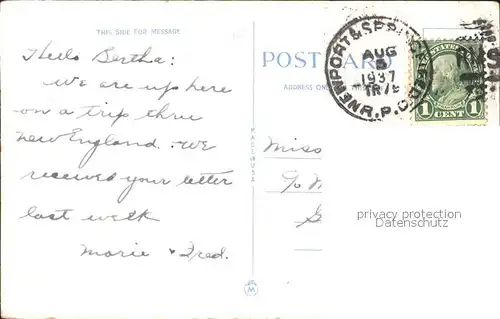 THIS SIDE FOR MESSAGE
Hello Bertha:
We are up here
on a trip thru
new England. We
received your letter
last week
Marie & Fred.
MADE IN USA
POST CARD
ADDRESS ONLY
NEWPORT & SPRING
AUG
5
1937
R.P.O.
UNITED STATES
1 1
CENT
Miss
privacy protection
Datenschutz